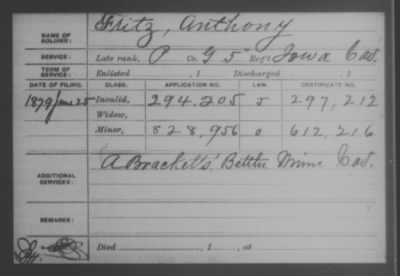 NAME OF SOLDIER: Fritz, Anthony
SERVICE: Late rank, P Co. G 5" Reg't Iowa Cav.
TERM OF SERVICE: Enlisted , 1 Discharged , 1
DATE OF FILING. CLASS. APPLICATION NO. LAW. CERTIFICATE NO.
1879 June 25 Invalid, 294.205 J 297,212
Widow,
Minor, 828,956 O 612,216
ADDITIONAL SERVICES: A Brackett's, Battln Minn Cav.
REMARKS:
Died , 1 , at